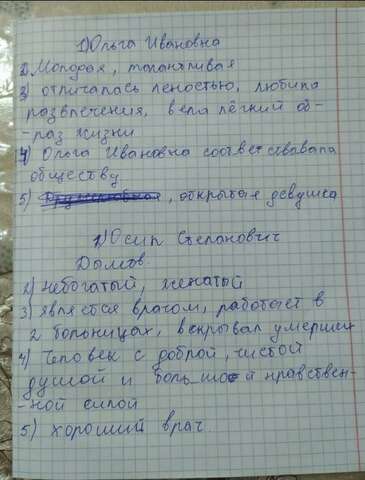 1) Ольга Ивановна
2) Молодая, талантливая
3) отличалась леностью, любила
развлечения, вела лёгкий об-
-раз жизни
4) Ольга Ивановна соответствавала
обществу
5) , открытая девушка
1) Осип Степанович
Дымов
2) небогатый, женатый
3) является врачом, работает в
2 больницах, вскрывал умерших
4) Человек с доброй, чистой
душой и большой нравствен-
-ной силой
5) хороший врач.